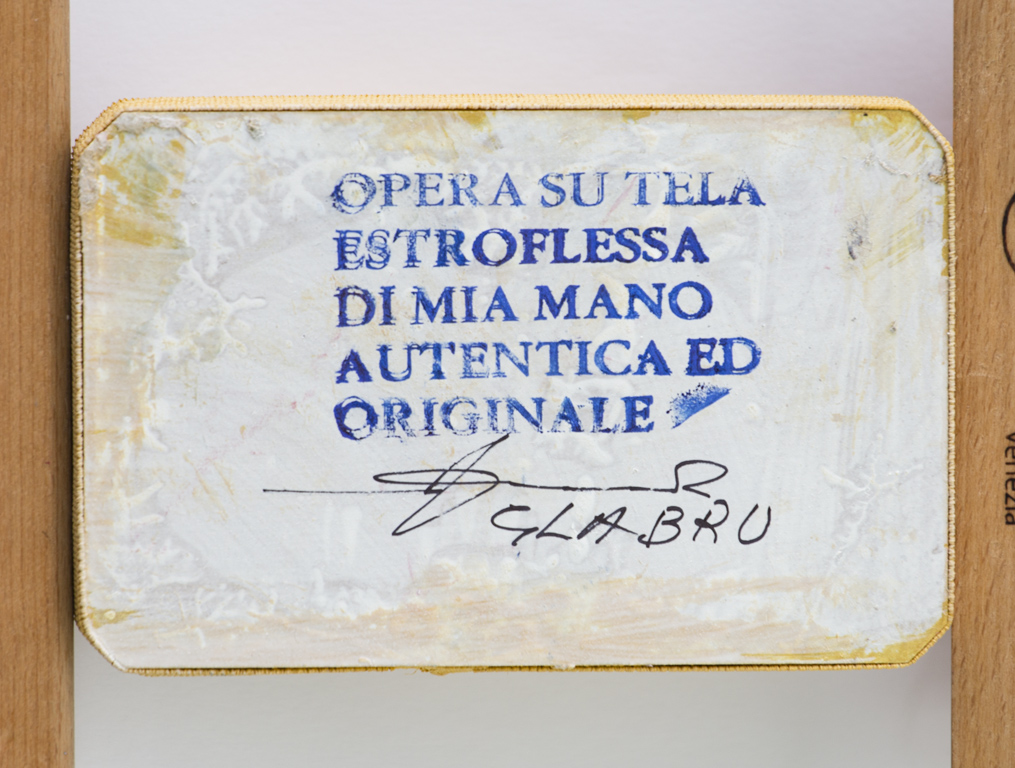 OPERA SU TELA
ESTROFLESSA
DI MIA MANO
AUTENTICA ED
ORIGINALE
GLABRU
Venezia